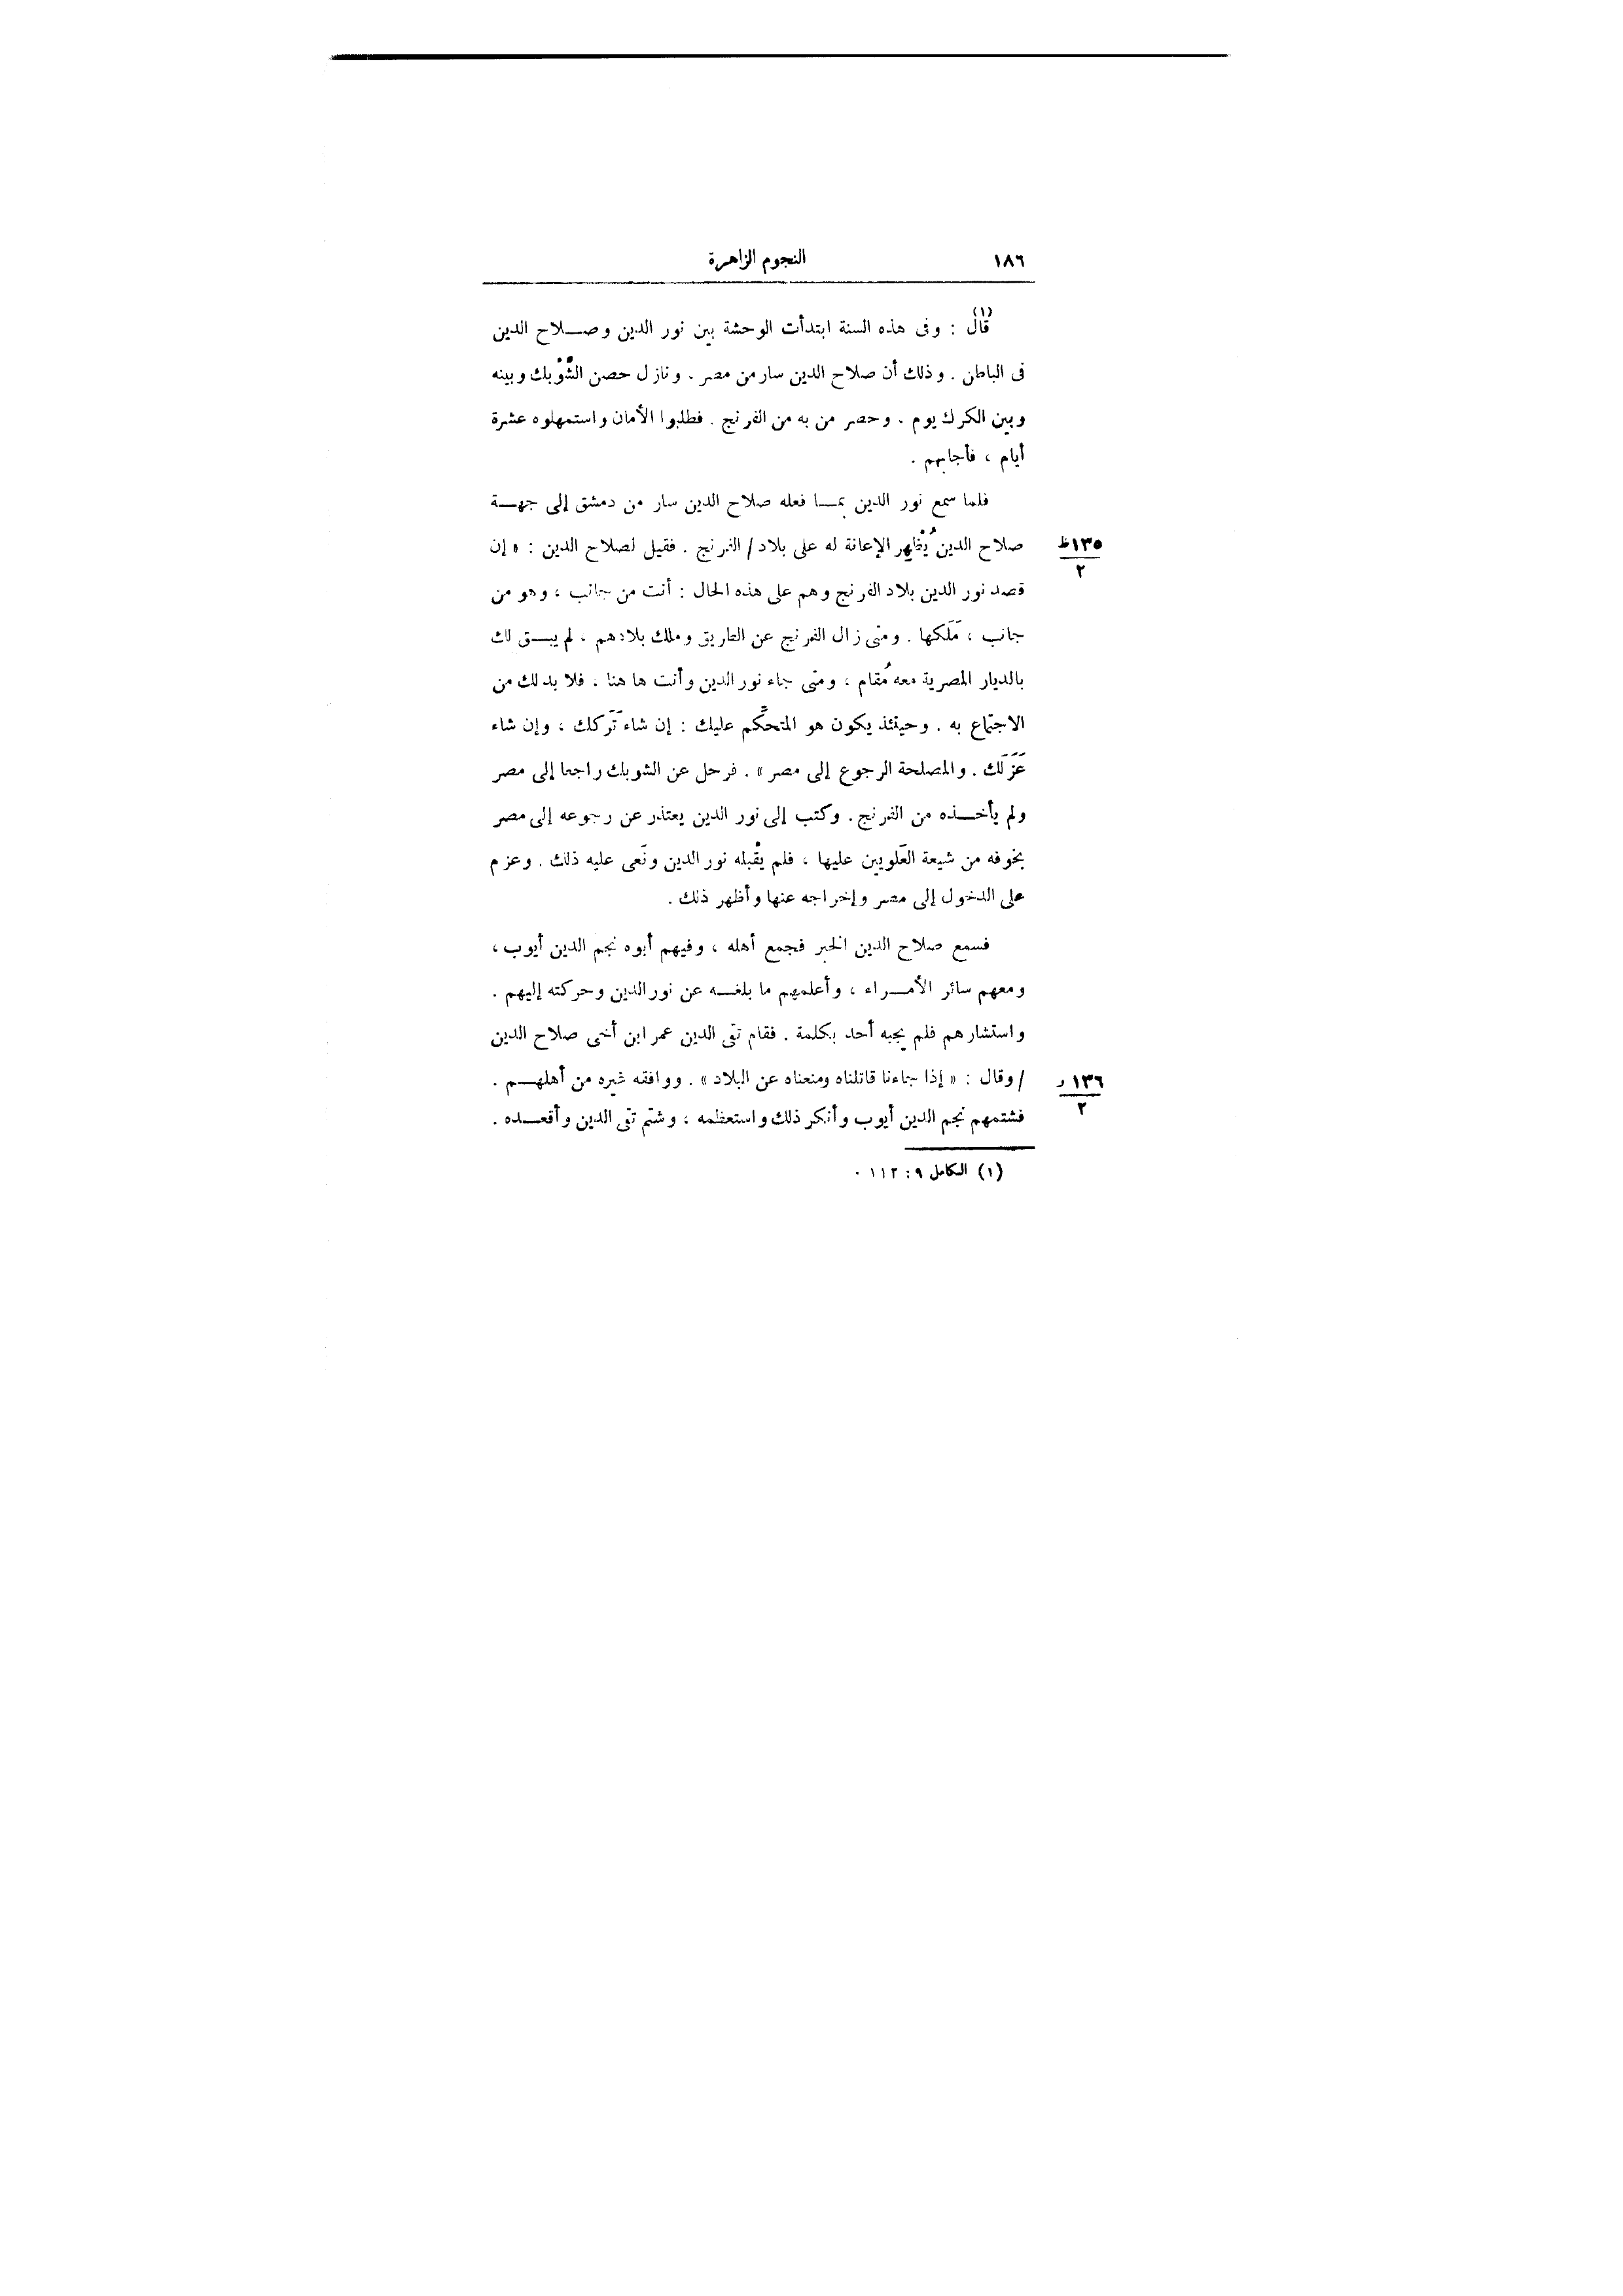 ١٨٦ النجوم الزاهرة
(١)
قال : وفى هذه السنة ابتدأت الوحشة بين نور الدين وصلاح الدين
فى الباطن . وذلك أن صلاح الدين سار من مصر . ونازل حصن الشَّوْبك وبينه
وبين الكرك يوم . وحصر من به من الفرنج . فطلبوا الأمان واستمهلوه عشرة
أيام ، فأجابهم .
فلما سمع نور الدين بما فعله صلاح الدين سار من دمشق إلى جهة
صلاح الدين يُظْهِر الإعانة له على بلاد / الفرنج . فقيل لصلاح الدين : « إن
١٣٥ظ
٢
قصد نور الدين بلاد الفرنج وهم على هذه الحال : أنت من جانب ، وهو من
جانب ، مَلَكها . ومتى زال الفرنج عن الطريق وملك بلادهم ، لم يبق لك
بالديار المصرية معه مُقام ، ومتى جاء نور الدين وأنت ها هنا . فلا بد لك من
الاجتماع به . وحينئذ يكون هو المتحكِّم عليك : إن شاء تَرَكك ، وإن شاء
عَزَلَك . والمصلحة الرجوع إلى مصر » . فرحل عن الشوبك راجعا إلى مصر
ولم يأخذه من الفرنج . وكتب إلى نور الدين يعتذر عن رجوعه إلى مصر
بخوفه من شيعة العَلويين عليها ، فلم يقْبله نور الدين ونَعى عليه ذلك . وعزم
على الدخول إلى مصر وإخراجه عنها وأظهر ذلك .
فسمع صلاح الدين الخبر فجمع أهله ، وفيهم أبوه نجم الدين أيوب ،
ومعهم سائر الأمراء ، وأعلمهم ما بلغه عن نور الدين وحركته إليهم .
واستشارهم فلم يجبه أحد بكلمة . فقام تقى الدين عمر ابن أخى صلاح الدين
/ وقال : « إذا جاءنا قاتلناه ومنعناه عن البلاد » . ووافقه غيره من أهلهم .
١٣٦ و
٢
فشتمهم نجم الدين أيوب وأنكر ذلك واستعظمه ، وشتم تقى الدين وأقعده .
(١) الكامل ٩ : ١١٢ .